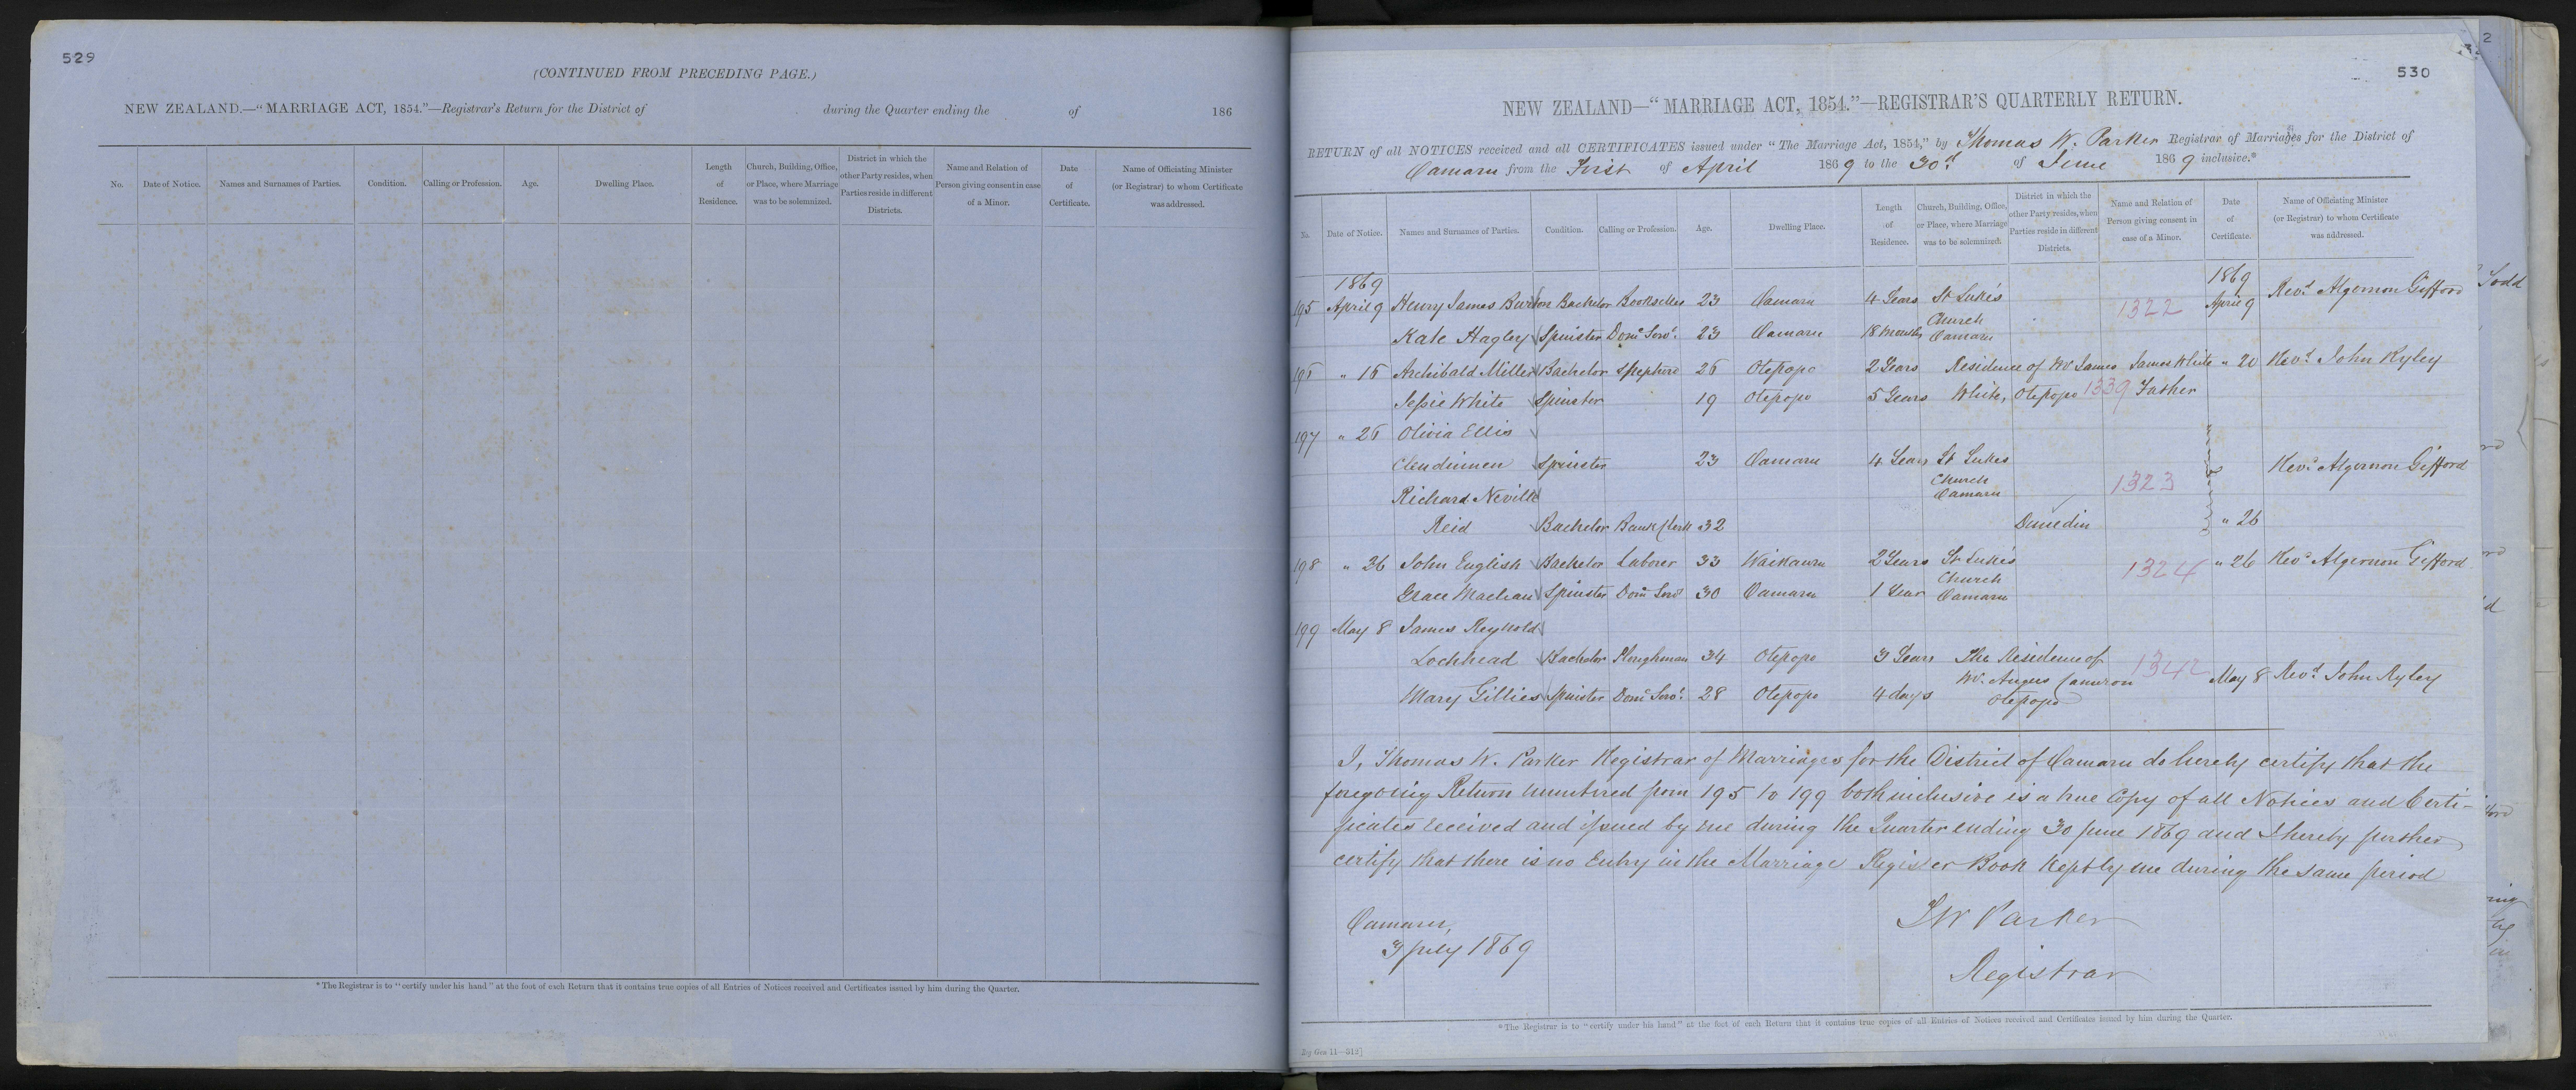 529
(CONTINUED FROM PRECEDING PAGE.)
NEW ZEALAND.—"MARRIAGE ACT, 1854."—Registrar's Return for the District of during the Quarter ending the of 186
No. Date of Notice. Names and Surnames of Parties. Condition. Calling or Profession. Age. Dwelling Place. Length of Residence. Church, Building, Office, or Place, where Marriage was to be solemnized. District in which the other Party resides, when Parties reside in different Districts. Name and Relation of Person giving consent in case of a Minor. Date of Certificate. Name of Officiating Minister (or Registrar) to whom Certificate was addressed.
*The Registrar is to "certify under his hand" at the foot of each Return that it contains true copies of all Entries of Notices received and Certificates issued by him during the Quarter.
2
530
NEW ZEALAND—"MARRIAGE ACT, 1854."—REGISTRAR'S QUARTERLY RETURN.
RETURN of all NOTICES received and all CERTIFICATES issued under "The Marriage Act, 1854," by Thomas W. Parker Registrar of Marriages for the District of
Oamaru from the First of April 1869 to the 30th of June 1869 inclusive.*
No. Date of Notice. Names and Surnames of Parties. Condition. Calling or Profession. Age. Dwelling Place. Length of Residence. Church, Building, Office, or Place, where Marriage was to be solemnized. District in which the other Party resides, when Parties reside in different Districts. Name and Relation of Person giving consent in case of a Minor. Date of Certificate. Name of Officiating Minister (or Registrar) to whom Certificate was addressed.
1869 1869
195 April 9 Henry James Burton Bachelor Bookseller 23 Oamaru 4 Years St Luke's 1322 April 9 Revd Algernon Gifford
Kate Hagley Spinster Domc Servt 23 Oamaru 18 months Church Oamaru
196 " 16 Archibald Miller Bachelor Shepherd 26 Otepopo 2 Years Residence of Mr James James White " 20 Revd John Ryley
Jessie White Spinster 19 Otepopo 5 Years White, Otepopo 1339 Father
197 " 26 Olivia Ellis
Clendinnen Spinster 23 Oamaru 4 Years St Lukes Revd Algernon Gifford
Richard Neville Church Oamaru 1323
Reid Bachelor Bank Clerk 32 Dunedin " 26
198 " 26 John English Bachelor Laborer 33 Waikaura 2 Years St Luke's 1324 " 26 Revd Algernon Gifford
Grace Maclean Spinster Domc Servt 30 Oamaru 1 Year Church Oamaru
199 May 8 James Reynold
Lochhead Bachelor Ploughman 34 Otepopo 3 Years The Residence of 1342
Mary Gillies Spinster Domc Servt 28 Otepopo 4 days Mr. Angus Cameron Otepopo May 8 Revd John Ryley
I, Thomas W. Parker Registrar of Marriages for the District of Oamaru do hereby certify that the
foregoing Return numbered from 195 to 199 both inclusive is a true Copy of all Notices and Certi-
ficates received and issued by me during the Quarter ending 30 June 1869 and I hereby further
certify that there is no Entry in the Marriage Register Book kept by me during the same period
Oamaru,
3 July 1869
T W Parker
Registrar
*The Registrar is to "certify under his hand" at the foot of each Return that it contains true copies of all Entries of Notices received and Certificates issued by him during the Quarter.